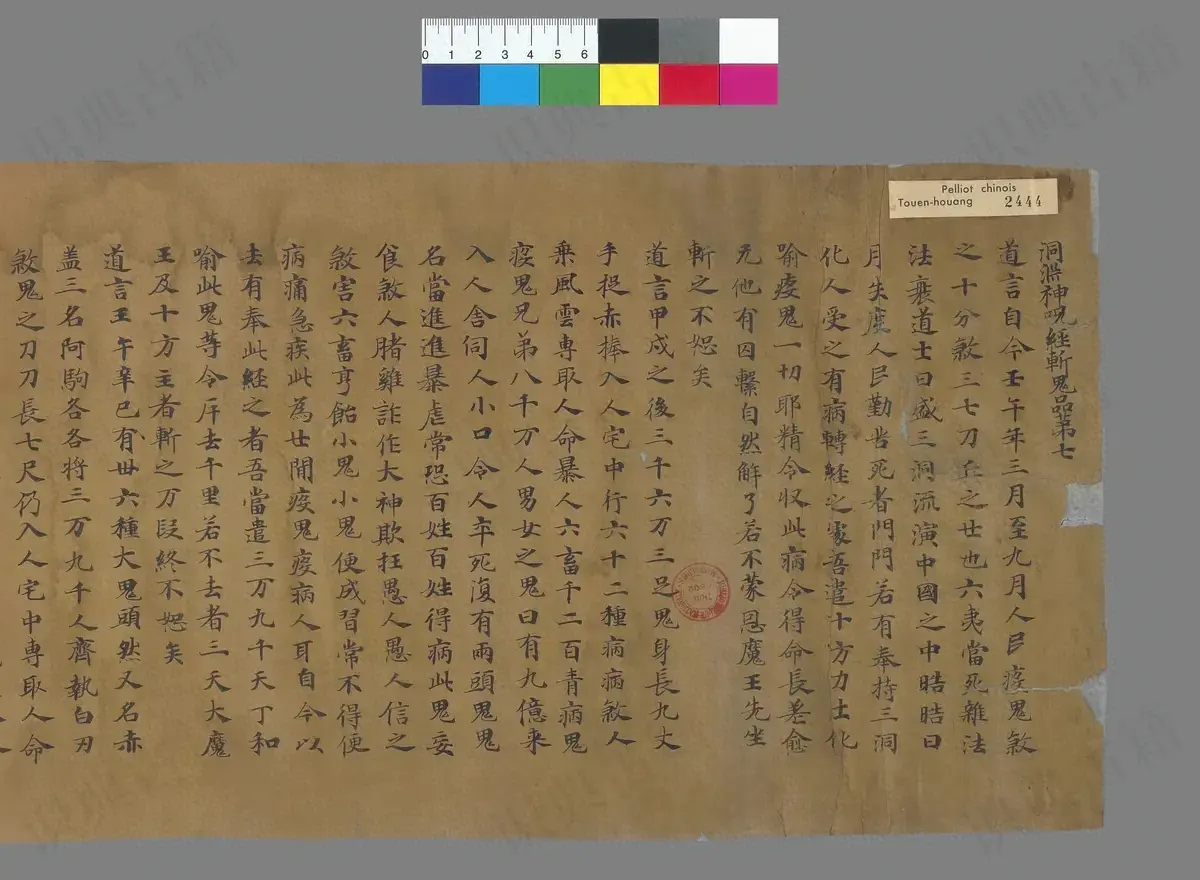 0 1 2 3 4 5 6
Pelliot chinois
Touen-houang 2444
洞淵神呪経斬鬼品第七
道言自今壬午年三月至九月人民疫鬼煞
之十分煞三七刀兵之世也六夷當死雜法
法襄道士日盛三洞流演中國之中晧晧日
月失度人民勤苦死者門門若有奉持三洞
化人受之有病轉経之家吾遣十方力士化
喻疫鬼一切耶精令収此病令得命長差愈
无他有囚繫自然解了若不蒙恩魔王先坐
斬之不恕矣
道言甲戍之後三千六万三足鬼身長九丈
手捉赤捧入人宅中行六十二種病病煞人
乗風雲専取人命暴人六畜千二百青病鬼
疫鬼兄弟八千万人男女之鬼日有九億来
入人舎伺人小口令人卒死復有兩頭鬼鬼
名當進進暴虐常恐百姓百姓得病此鬼妄
食煞人猪雞詐作大神欺抂愚人愚人信之
煞害六畜亨飴小鬼小鬼便成習常不得便
病痛急疾此為世間疫鬼疫病人耳自今以
去有奉此経之者吾當遣三万九千天丁和
喻此鬼等令斥去千里若不去者三天大魔
王及十方主者斬之万段終不恕矣
道言壬午辛巳有卅六種大鬼頭然又名赤
盖三名阿駒各各将三万九千人齊執白刃
煞鬼之刀刀長七尺仍入人宅中専取人命